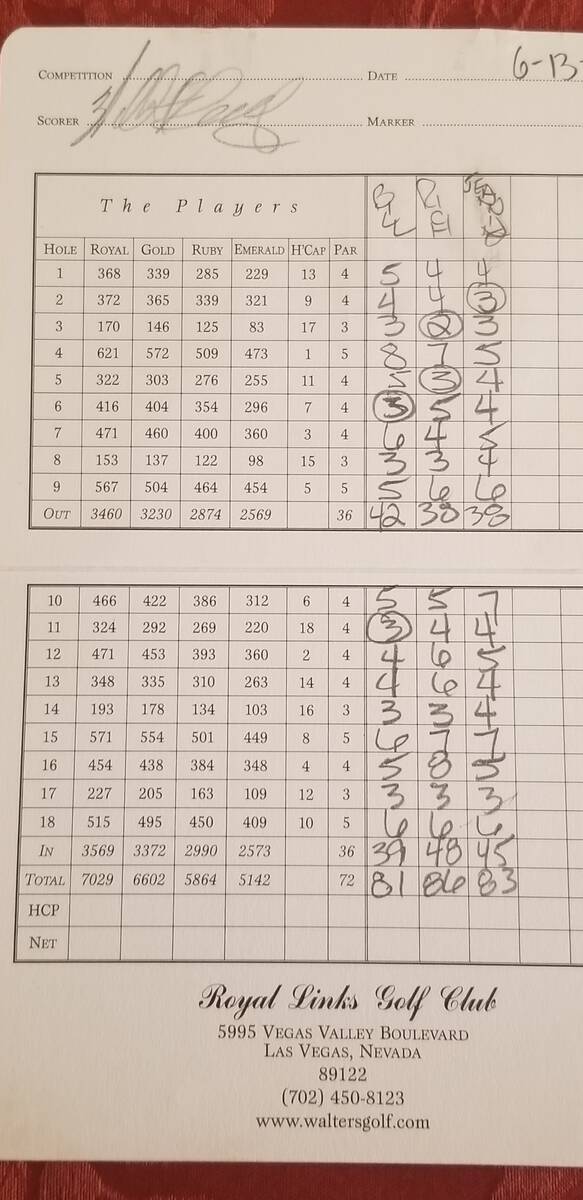 COMPETITION DATE 6-13-
SCORER MARKER
The Players BW RICH
HOLE ROYAL GOLD RUBY EMERALD H'CAP PAR
1 368 339 285 229 13 4 5 4 4
2 372 365 339 321 9 4 4 4 3
3 170 146 125 83 17 3 3 2 3
4 621 572 509 473 1 5 8 7 5
5 322 303 276 255 11 4 5 3 4
6 416 404 354 296 7 4 3 5 4
7 471 460 400 360 3 4 6 4 5
8 153 137 122 98 15 3 3 3 4
9 567 504 464 454 5 5 5 6 6
OUT 3460 3230 2874 2569 36 42 38 38
10 466 422 386 312 6 4 5 5 7
11 324 292 269 220 18 4 3 4 4
12 471 453 393 360 2 4 4 6 5
13 348 335 310 263 14 4 4 6 4
14 193 178 134 103 16 3 3 3 4
15 571 554 501 449 8 5 6 7 7
16 454 438 384 348 4 4 5 8 5
17 227 205 163 109 12 3 3 3 3
18 515 495 450 409 10 5 6 6 6
IN 3569 3372 2990 2573 36 39 48 45
TOTAL 7029 6602 5864 5142 72 81 86 83
HCP
NET
Royal Links Golf Club
5995 VEGAS VALLEY BOULEVARD
LAS VEGAS, NEVADA
89122
(702) 450-8123
www.waltersgolf.com